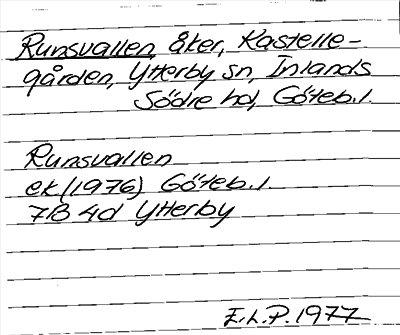 Runsvallen, åker, Kastelle-
gården, Ytterby sn, Inlands
Södre hd, Göteb.l.
Runsvallen
ek (1976) Göteb.l.
7B 4d Ytterby
E.L.P. 1977